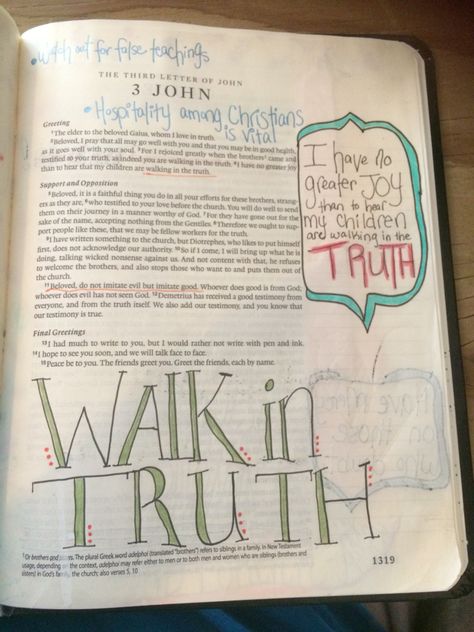 • Watch out for false teachings
THE THIRD LETTER OF JOHN
3 JOHN
• Hospitality among Christians
is vital
Greeting
1The elder to the beloved Gaius, whom I love in truth.
2Beloved, I pray that all may go well with you and that you may be in good health,
as it goes well with your soul. 3For I rejoiced greatly when the brothers1 came and
testified to your truth, as indeed you are walking in the truth. 4I have no greater joy
than to hear that my children are walking in the truth.
Support and Opposition
5Beloved, it is a faithful thing you do in all your efforts for these brothers, strang-
ers as they are, 6who testified to your love before the church. You will do well to send
them on their journey in a manner worthy of God. 7For they have gone out for the
sake of the name, accepting nothing from the Gentiles. 8Therefore we ought to sup-
port people like these, that we may be fellow workers for the truth.
9I have written something to the church, but Diotrephes, who likes to put himself
first, does not acknowledge our authority. 10So if I come, I will bring up what he is
doing, talking wicked nonsense against us. And not content with that, he refuses
to welcome the brothers, and also stops those who want to and puts them out of
the church.
11Beloved, do not imitate evil but imitate good. Whoever does good is from God;
whoever does evil has not seen God. 12Demetrius has received a good testimony from
everyone, and from the truth itself. We also add our testimony, and you know that
our testimony is true.
Final Greetings
13I had much to write to you, but I would rather not write with pen and ink.
14I hope to see you soon, and we will talk face to face.
15Peace be to you. The friends greet you. Greet the friends, each by name.
I have no
greater JOY
than to hear
my children
are walking in the
TRUTH
WALK in
TRUTH
1 Or brothers and sisters. The plural Greek word adelphoi (translated "brothers") refers to siblings in a family. In New Testament
usage, depending on the context, adelphoi may refer either to men or to both men and women who are siblings (brothers and
sisters) in God's family, the church; also verses 5, 10
1319